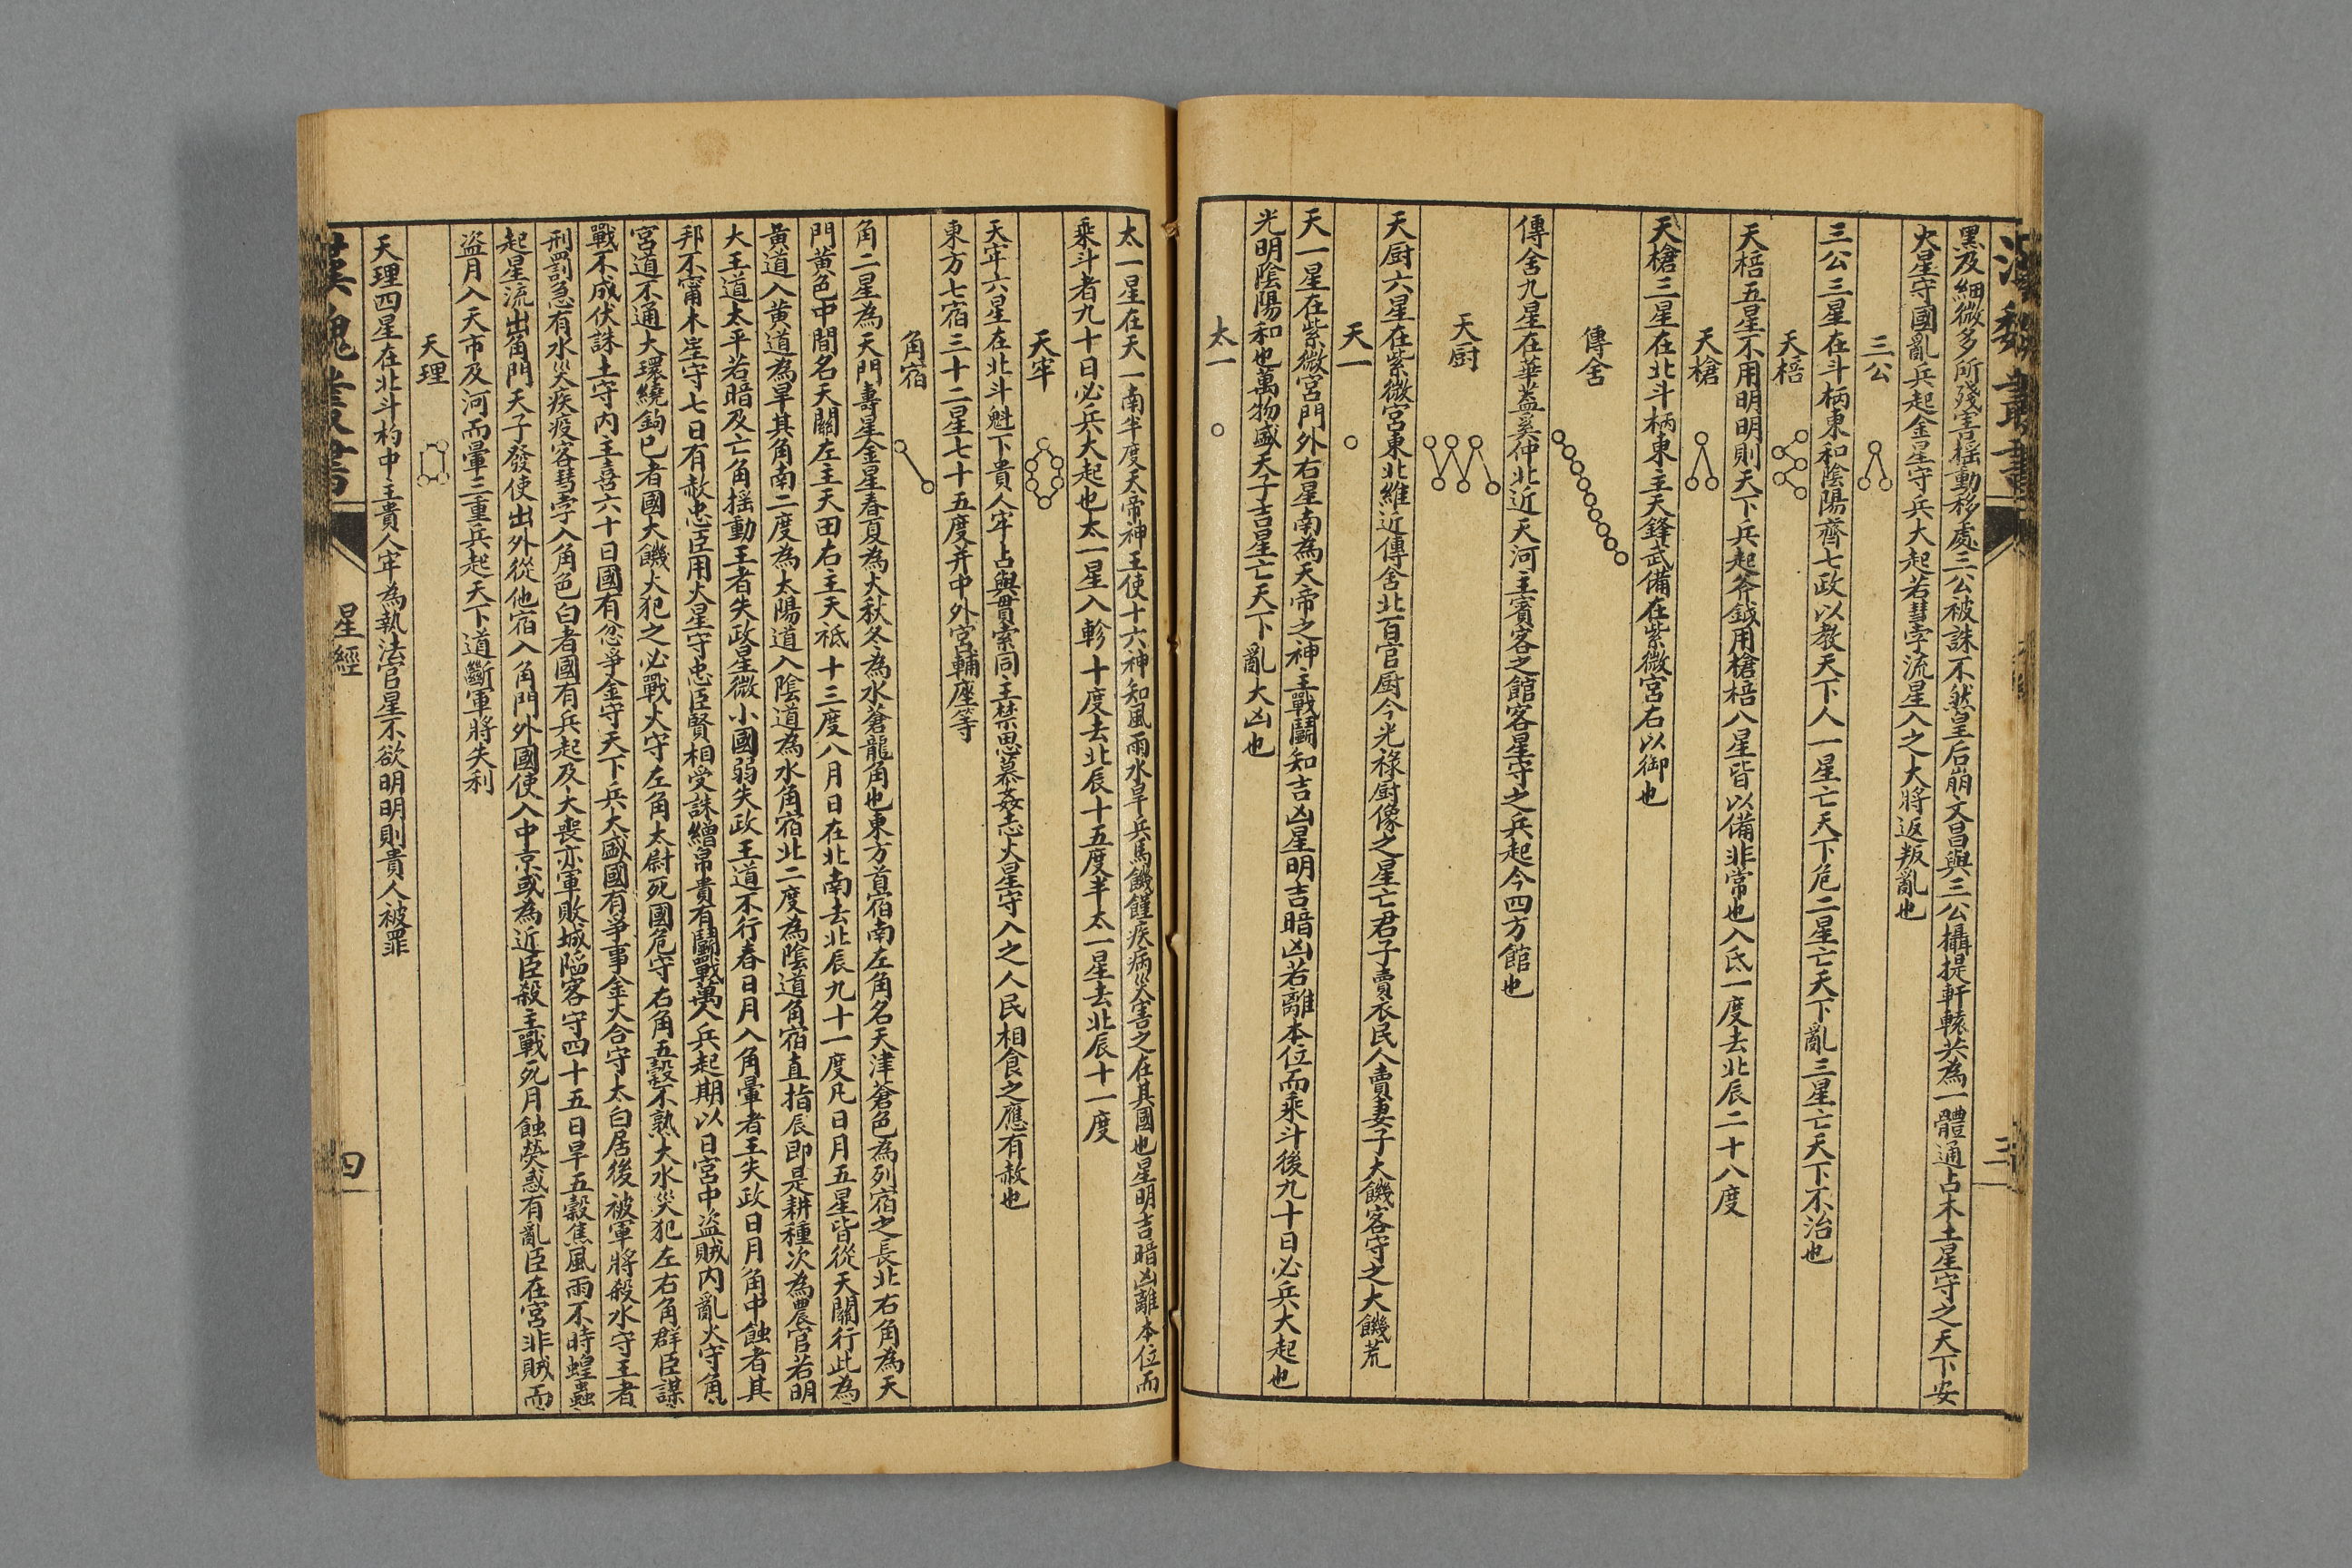 漢魏叢書
三
黑及細微多所殘害搖動移處三公被誅不然皇后崩文昌與三公攝提軒轅共為一體通占木土星守之天下安
火星守國亂兵起金星守兵大起若彗孛流星入之大將返叛亂也
三公
三公三星在斗柄東和陰陽齊七政以教天下人一星亡天下危二星亡天下亂三星亡天下不治也
天棓
天棓五星不用明明則天下兵起斧鉞用槍棓八星皆以備非常也入氐一度去北辰二十八度
天槍
天槍三星在北斗柄東主天鋒武備在紫微宮右以御也
傳舍
傳舍九星在華蓋奚仲北近天河主賓客之館客星守之兵起今四方館也
天厨
天厨六星在紫微宮東北維近傳舍北百官厨今光祿厨像之星亡君子賣衣民人賣妻子大饑客守之大饑荒
天一
天一星在紫微宮門外右星南為天帝之神主戰鬪知吉凶星明吉暗凶若離本位而乘斗後九十日必兵大起也
光明陰陽和也萬物盛天子吉星亡天下亂大凶也
太一
太一星在天一南半度天帝神主使十六神知風雨水旱兵馬饑饉疾病災害之在其國也星明吉暗凶離本位而
乘斗者九十日必兵大起也太一星入軫十度去北辰十五度半太一星去北辰十一度
天牢
天牢六星在北斗魁下貴人牢占與貫索同主禁思慕姦志火星守入之人民相食之應有赦也
東方七宿三十二星七十五度并中外宮輔座等
角宿
角二星為天門壽星金星春夏為火秋冬為水蒼龍角也東方首宿南左角名天津蒼色為列宿之長北右角為天
門黃色中間名天關左主天田右主天祗十三度八月日在北南去北辰九十一度凡日月五星皆從天關行此為
黃道入黃道為旱其角南二度為太陽道入陰道為水角宿北二度為陰道角宿直指辰即是耕種次為農官若明
大王道太平若暗及亡角搖動王者失政星微小國弱失政王道不行春日月入角暈者王失政日月角中蝕者其
邦不甯木星守七日有赦忠臣用火星守忠臣賢相受誅繒帛貴有鬪戰萬人兵起期以日宮中盜賊內亂火守角
宮道不通大環繞鉤巳者國大饑火犯之必戰火守左角太尉死國危守右角五穀不熟大水災犯左右角群臣謀
戰不成伏誅土守内主喜六十日國有忿爭金守天下兵大盛國有爭事金火合守太白居後被軍將殺水守王者
刑罰急有水災疾疫客彗孛入角色白者國有兵起及大喪亦軍敗城陷客守四十五日旱五穀焦風雨不時蝗蟲
起星流出角門天子發使出外從他宿入角門外國使入中京或為近臣殺主戰死月蝕熒惑有亂臣在宮非賊而
盜月入天市及河而暈三重兵起天下道斷軍將失利
天理
天理四星在北斗杓中主貴人牢為執法官星不欲明明則貴人被罪
漢魏叢書
星經
四